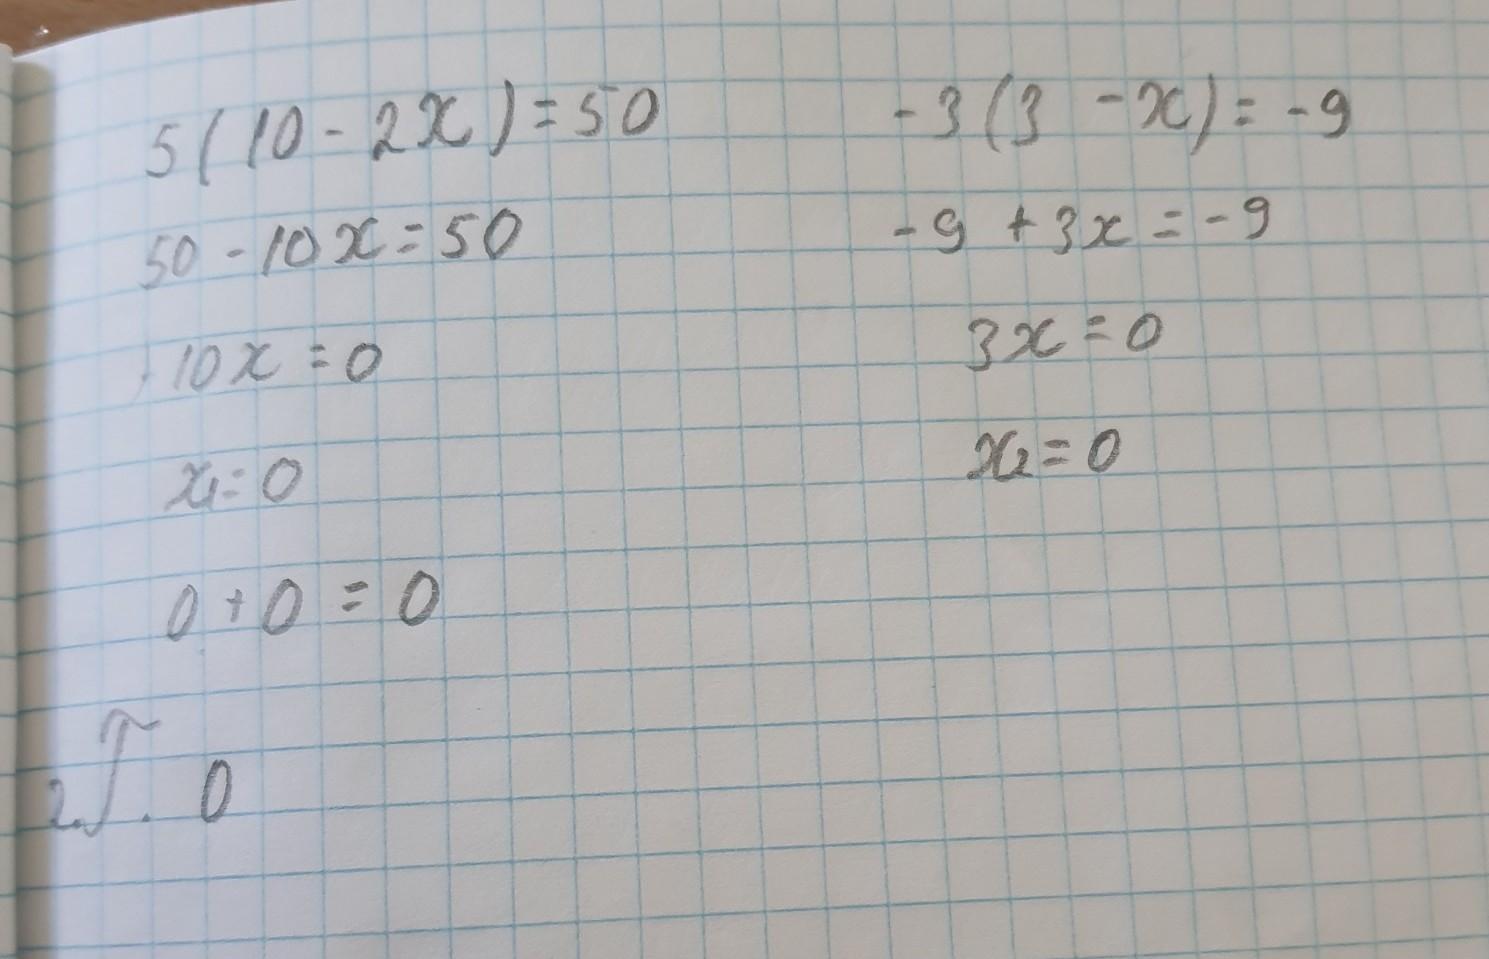 5(10-2x)=50
50-10x=50
10x=0
x₁=0
0+0=0
-3(3-x)=-9
-9+3x=-9
3x=0
x₂=0
2. 0